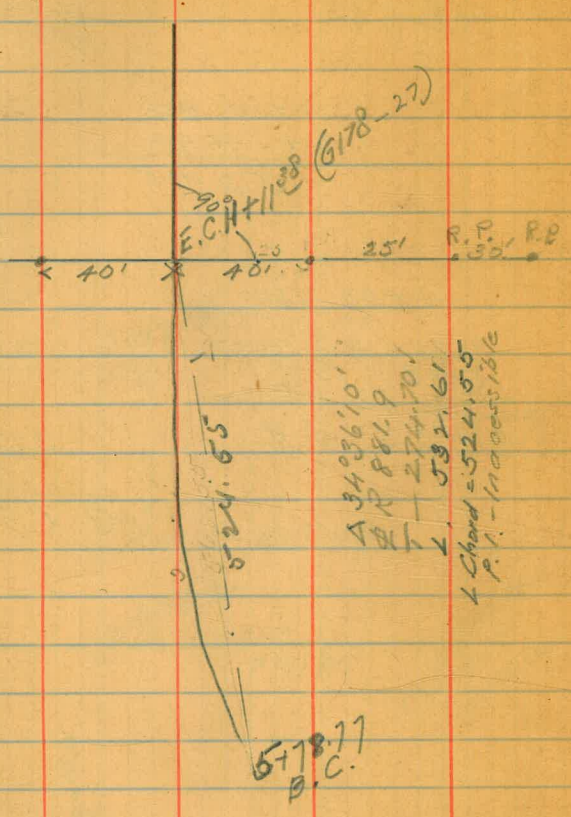 (6178-27)
90°
E.C. 11+11.38
25
40'
40'
25'
R.P.
30'
R.P.
524.65
Δ 34°36'10"
R 881.9
T - 274.70
L 532.61
L Chord = 524.55
P.I. - Inaccessible
5+78.77
B.C.